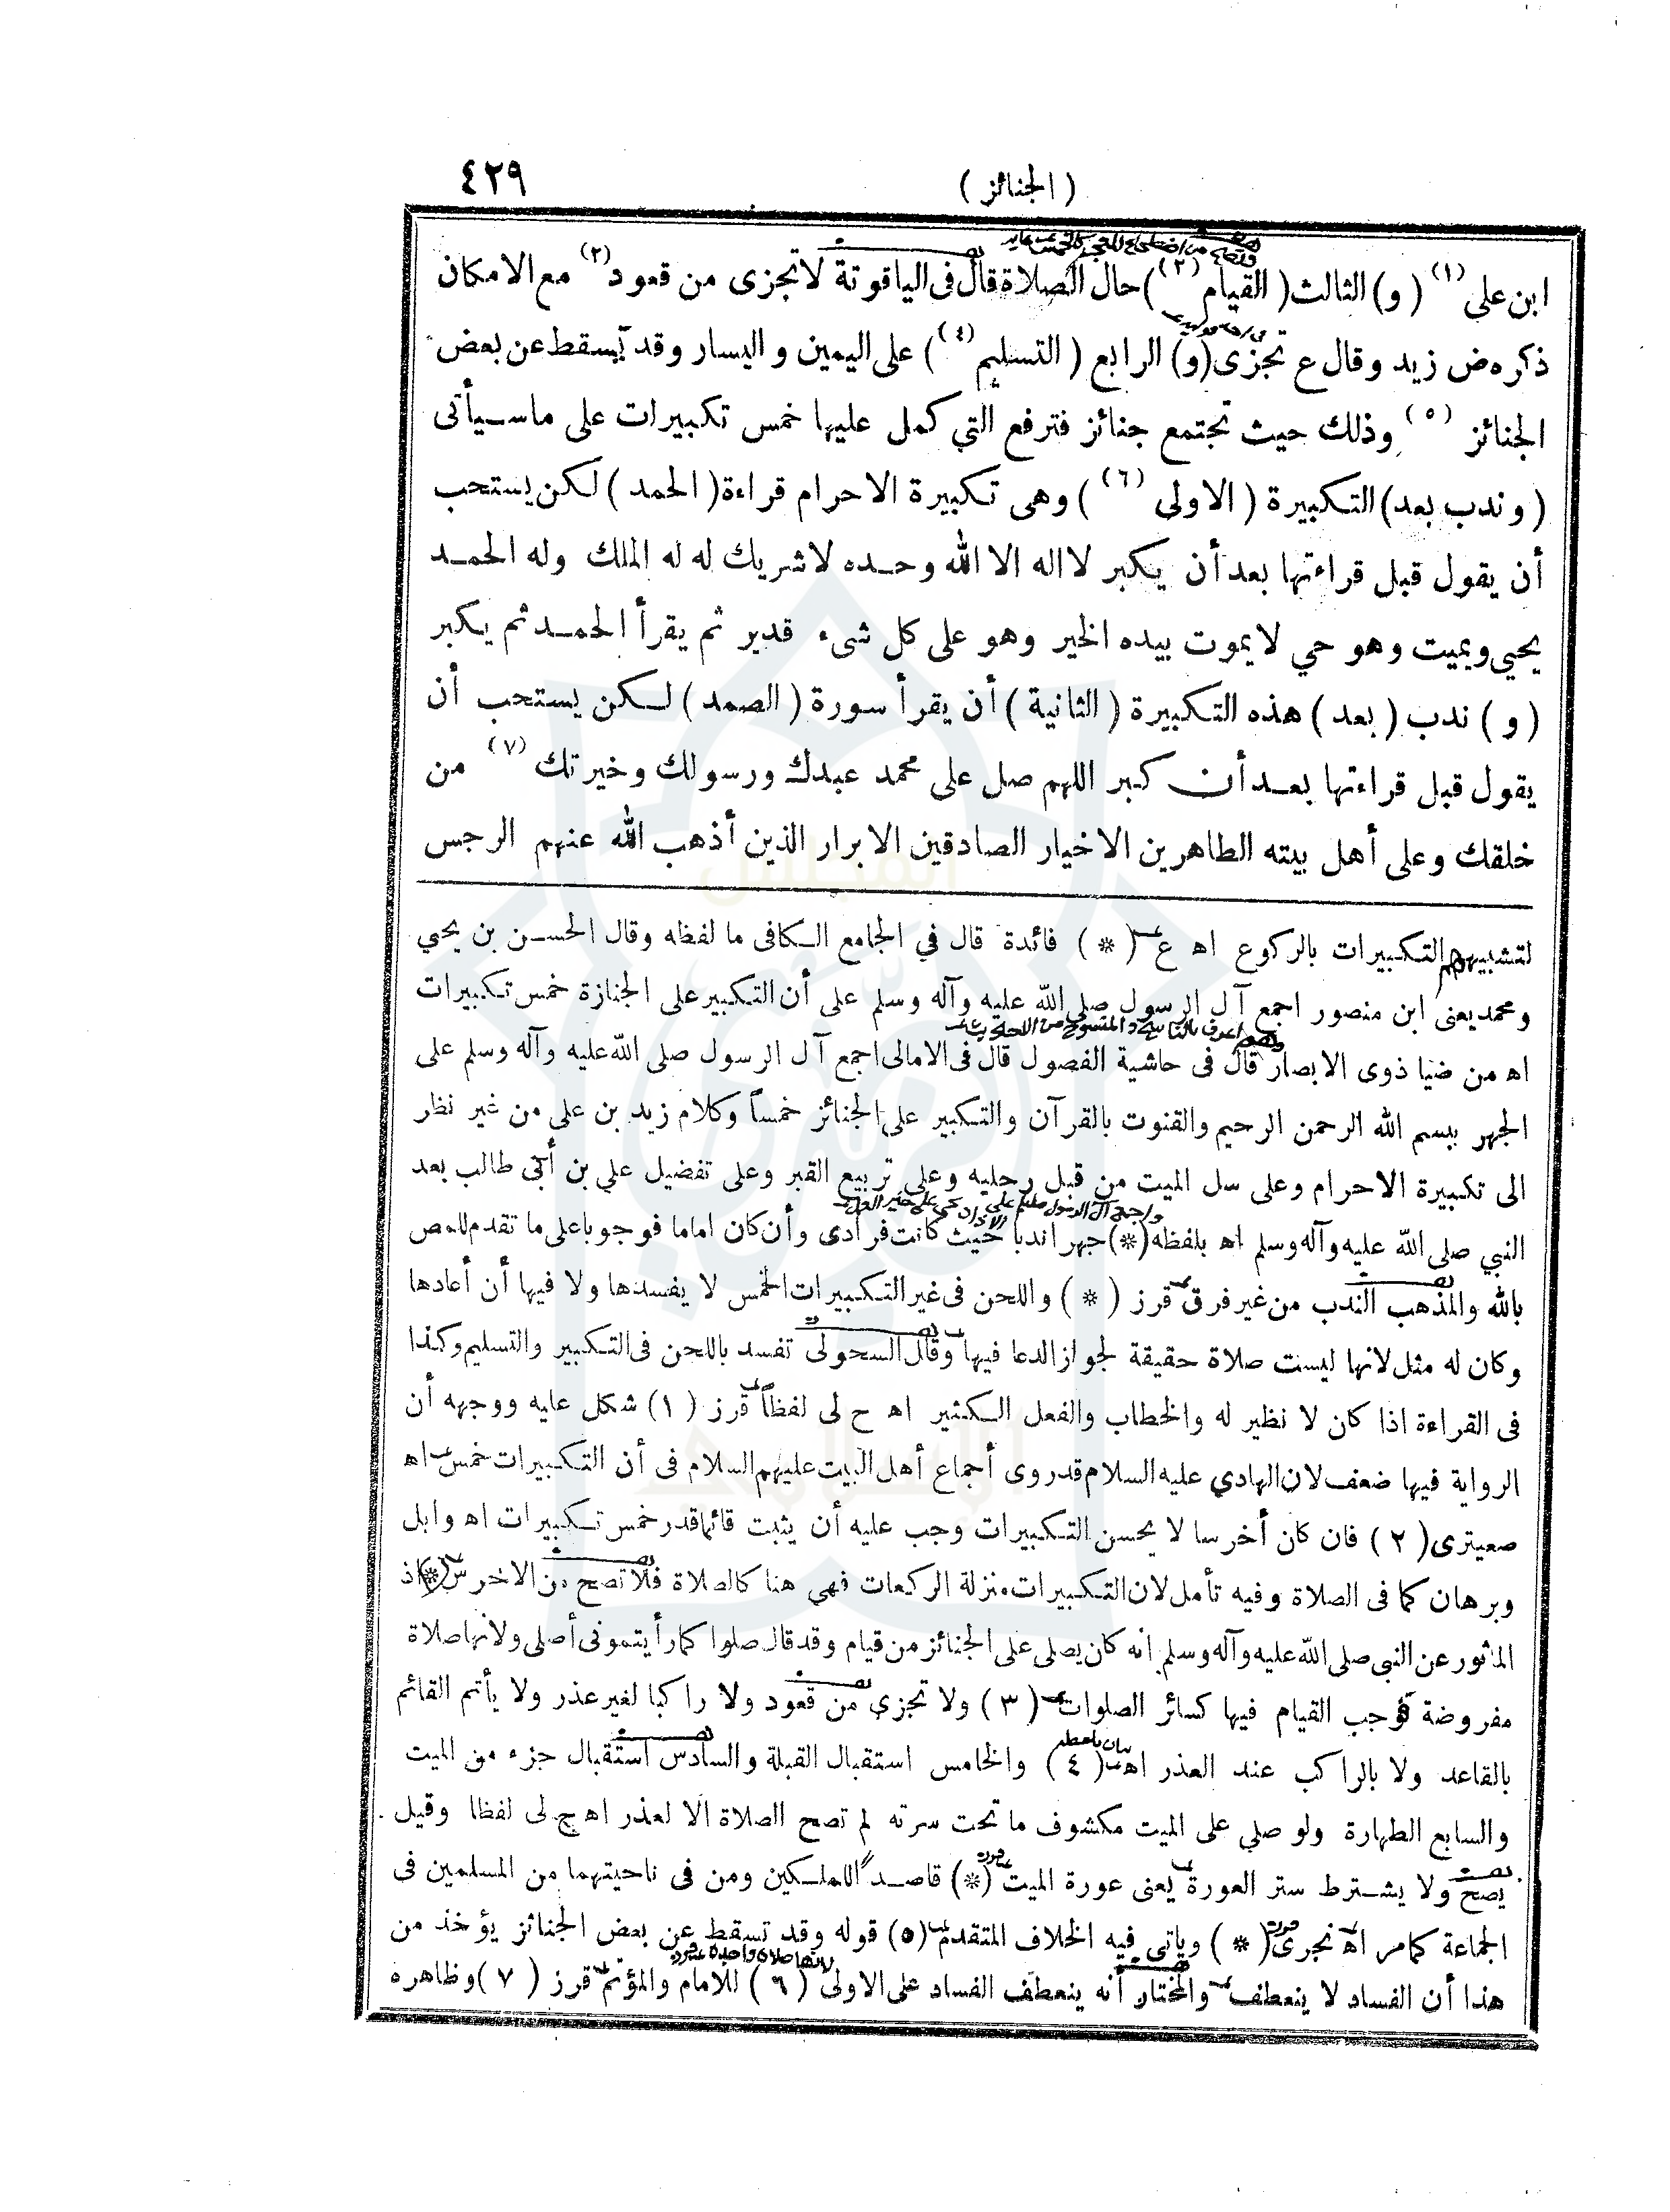 (الجنائز) ٤٢٩
ابن على (١) (و) الثالث (القيام (٢)) حال الصلاة قال فى الياقوتة لاتجزى من قعود (٣) مع الامكان
ذكره ض زيد وقال ع تجزى (و) الرابع (التسليم (٤)) على اليمين واليسار وقد يسقط عن بعض
الجنائز (٥) وذلك حيث تجتمع جنائز فترفع التي كمل عليها خمس تكبيرات على ماسيأتى
(وندب بعد) التكبيرة (الاولى (٦)) وهى تكبيرة الاحرام قراءة (الحمد) لكن يستحب
أن يقول قبل قراءتها بعد أن يكبر لا اله الا الله وحده لاشريك له له الملك وله الحمد
يحيى ويميت وهو حي لايموت بيده الخير وهو على كل شىء قدير ثم يقرأ الحمد ثم يكبر
(و) ندب (بعد) هذه التكبيرة (الثانية) أن يقرأ سورة (الصمد) لكن يستحب أن
يقول قبل قراءتها بعد أن كبر اللهم صل على محمد عبدك ورسولك وخيرتك (٧) من
خلقك وعلى أهل بيته الطاهرين الاخيار الصادقين الابرار الذين أذهب الله عنهم الرجس
لتشبيههم التكبيرات بالركوع اه ع (*) فائدة قال في الجامع الكافى ما لفظه وقال الحسن بن يحيي
ومحمد يعنى ابن منصور اجمع آل الرسول صلى الله عليه وآله وسلم على أن التكبير على الجنازة خمس تكبيرات
وهم اعرف بالناسخ والمنسوخ من الاحاديث
اه من ضيا ذوى الابصار قال فى حاشية الفصول قال فى الامالى اجمع آل الرسول صلى الله عليه وآله وسلم على
الجهر ببسم الله الرحمن الرحيم والقنوت بالقرآن والتكبير على الجنائز خمساً وكلام زيد بن على من غير نظر
الى تكبيرة الاحرام وعلى سل الميت من قبل رحليه وعلى تربيع القبر وعلى تفضيل علي بن أبى طالب بعد
واجمع آل الرسول صلعم على الاذان بحي على خير العمل
النبي صلى الله عليه وآله وسلم اه بلفظه (*) جهرا ندبا حيث كانت فرادى وأن كان اماما فوجوبا على ما تقدم للمص
بالله والمذهب الندب من غير فرق قرز (*) واللحن فى غير التكبيرات الخمس لا يفسدها ولا فيها أن أعادها
وكان له مثل لانها ليست صلاة حقيقة لجواز الدعا فيها وقال السحولى تفسد باللحن فى التكبير والتسليم وكذا
فى القراءة اذا كان لا نظير له والخطاب والفعل الكثير اه ح لى لفظاً قرز (١) شكل عليه ووجهه أن
الرواية فيها ضعف لان الهادي عليه السلام قد روى أجماع أهل البيت عليهم السلام فى أن التكبيرات خمس اه
صعيترى (٢) فان كان أخرسا لا يحسن التكبيرات وجب عليه أن يثبت قائما قدر خمس تكبيرات اه وابل
وبرهان كما فى الصلاة وفيه تأمل لان التكبيرات منزلة الركعات فهي هنا كالصلاة فلا تصح من الاخرس (*) اذ
المأثور عن النبى صلى الله عليه وآله وسلم انه كان يصلى على الجنائز من قيام وقد قال صلوا كما رأيتمونى أصلى ولانها صلاة
مفروضة فوجب القيام فيها كسائر الصلوات (٣) ولا تجزي من قعود ولا راكبا لغير عذر ولا يأتم القائم
بالقاعد ولا بالراكب عند العذر اه بيان بلفظه (٤) والخامس استقبال القبلة والسادس استقبال جزء من الميت
والسابع الطهارة ولو صلي على الميت مكشوف ما تحت سرته لم تصح الصلاة الا لعذر اه ح لى لفظا وقيل
يصح ولا يشترط ستر العورة يعنى عورة الميت قرز (*) قاصداً للملكين ومن فى ناحيتهما من المسلمين فى
الجماعة كمامر اه نجرى قرز (*) وياتى فيه الخلاف المتقدم (٥) قوله وقد تسقط عن بعض الجنائز يؤخذ من
لانها صلاة واحدة قرز
هذا أن الفساد لا ينعطف والمختار أنه ينعطف الفساد على الاولى (٦) للامام والمؤتم قرز (٧) وظاهره